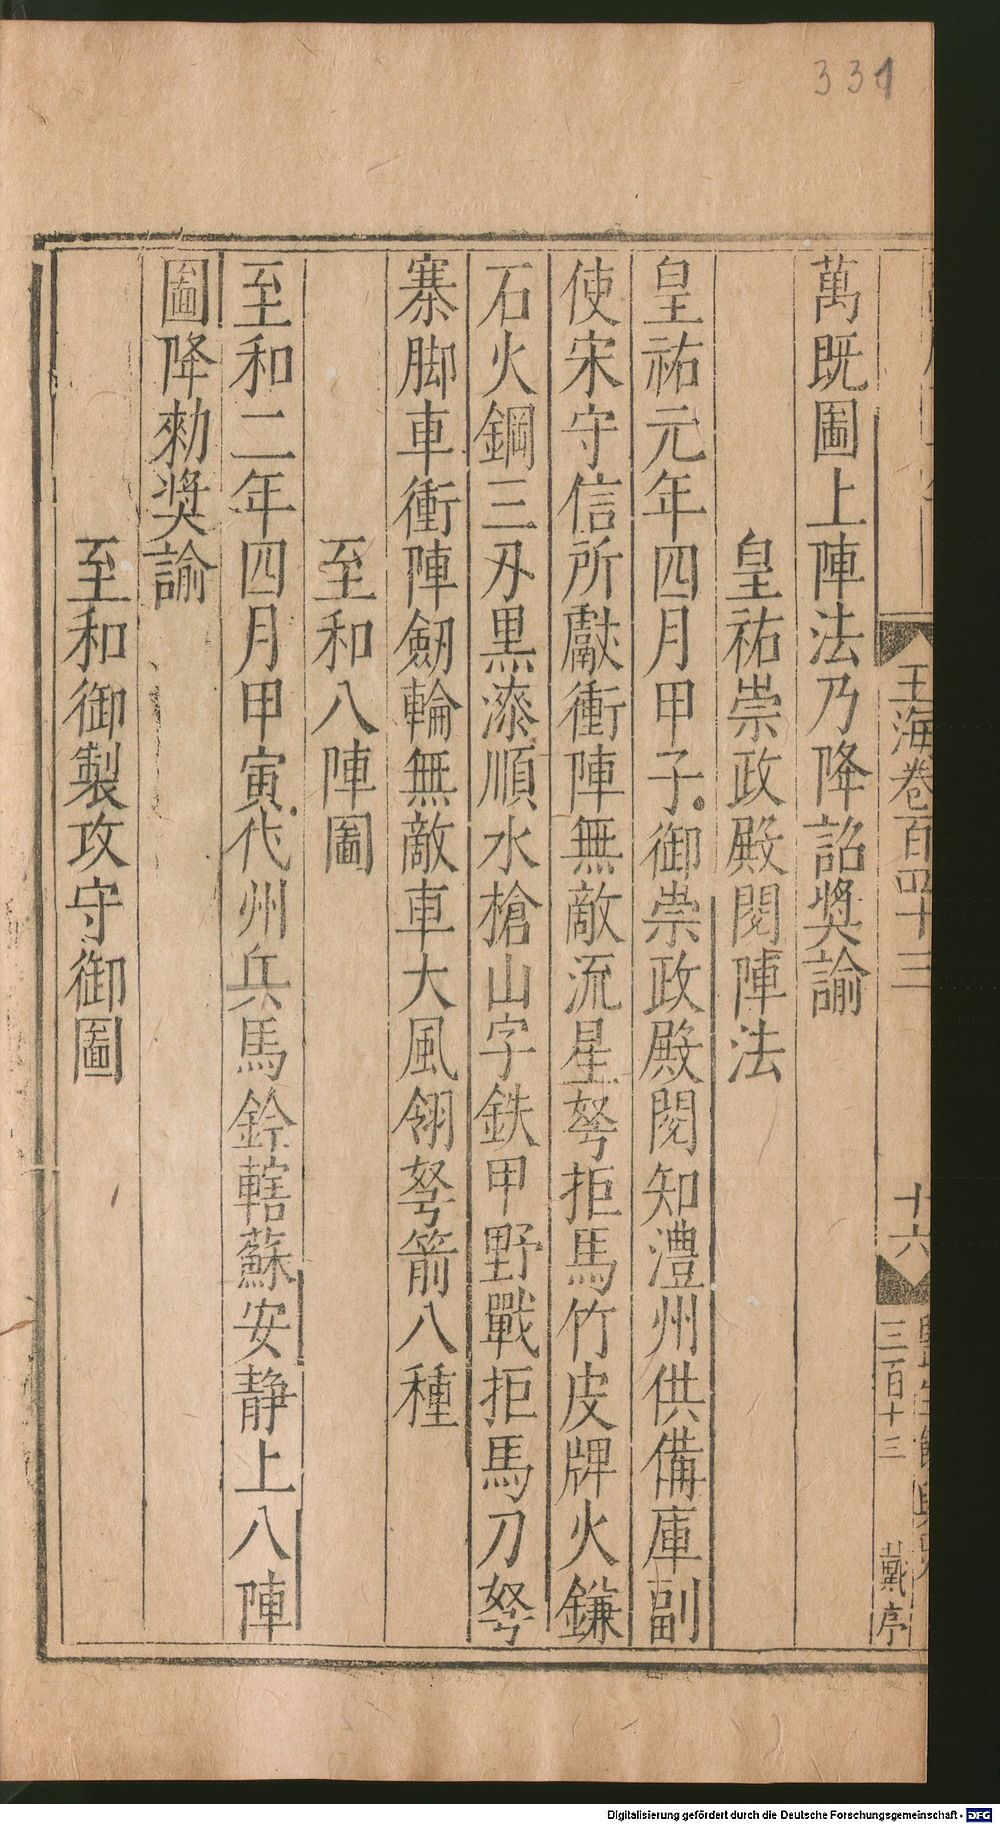 331
玉海卷百四十三
十六
三百十三
戴亭
萬既圖上陣法乃降詔奬諭
皇祐崇政殿閱陣法
皇祐元年四月甲子御崇政殿閱知澧州供備庫副
使宋守信所獻衝陣無敵流星弩拒馬竹皮牌火鎌
石火鋼三刃黒漆順水槍山字鉄甲野戰拒馬刀弩
寨脚車衝陣劔輪無敵車大風翎弩箭八種
至和八陣圖
至和二年四月甲寅代州兵馬鈐轄蘇安静上八陣
圖降勑奬諭
至和御製攻守御圖
Digitalisierung gefördert durch die Deutsche Forschungsgemeinschaft - DFG